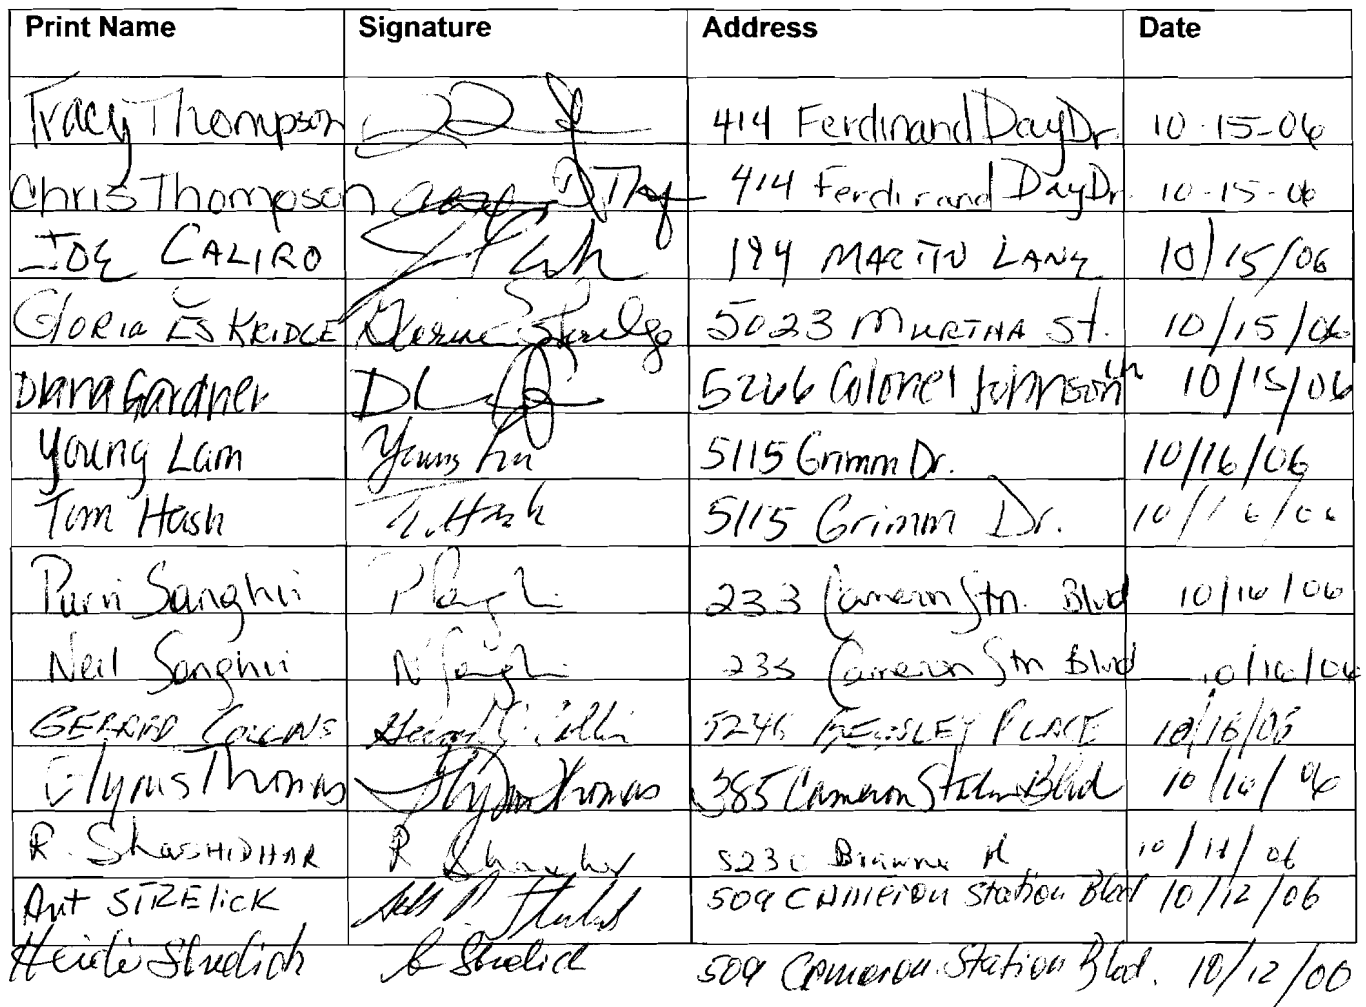 Print Name Signature Address Date
Tracy Thompson 414 Ferdinand Day Dr. 10-15-06
Chris Thompson 414 Ferdinand Day Dr. 10-15-06
JOE CALIRO 194 MARTIN LANE 10/15/06
GLORIA ESKRIDGE 5023 MURTHA St. 10/15/06
Diana Gardner 5266 Colonel Johnson Ln 10/15/06
Young Lam Young Lam 5115 Grimm Dr. 10/16/06
Tom Hash T. Hash 5115 Grimm Dr. 10/16/06
Purvi Sanghvi 233 Cameron Stn. Blvd 10/16/06
Neil Sanghvi 233 Cameron Stn Blvd 10/16/06
GERRARD COLLINS 5246 PLACE 10/16/06
Thomas Thomas 385 Cameron Station Blvd 10/16/06
R. SHASHIDHAR R 06
Art STRElick 509 CAMERON Station Blvd 10/12/06
Heidi Strelich Strelich 509 Cameron Station Blvd. 10/12/06